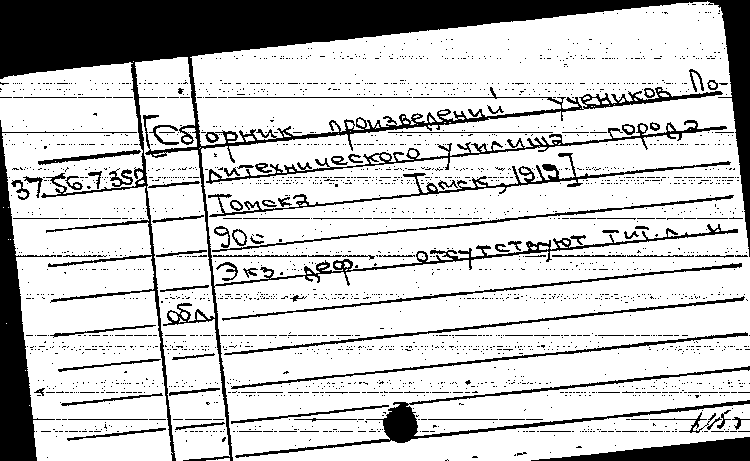 [Сборник произведений учеников По-
литехнического училища города
37.56.7.358
Томска. Томск, 1919]
90с.
Экз. деф.: отсутствуют тит.л. и
обл.